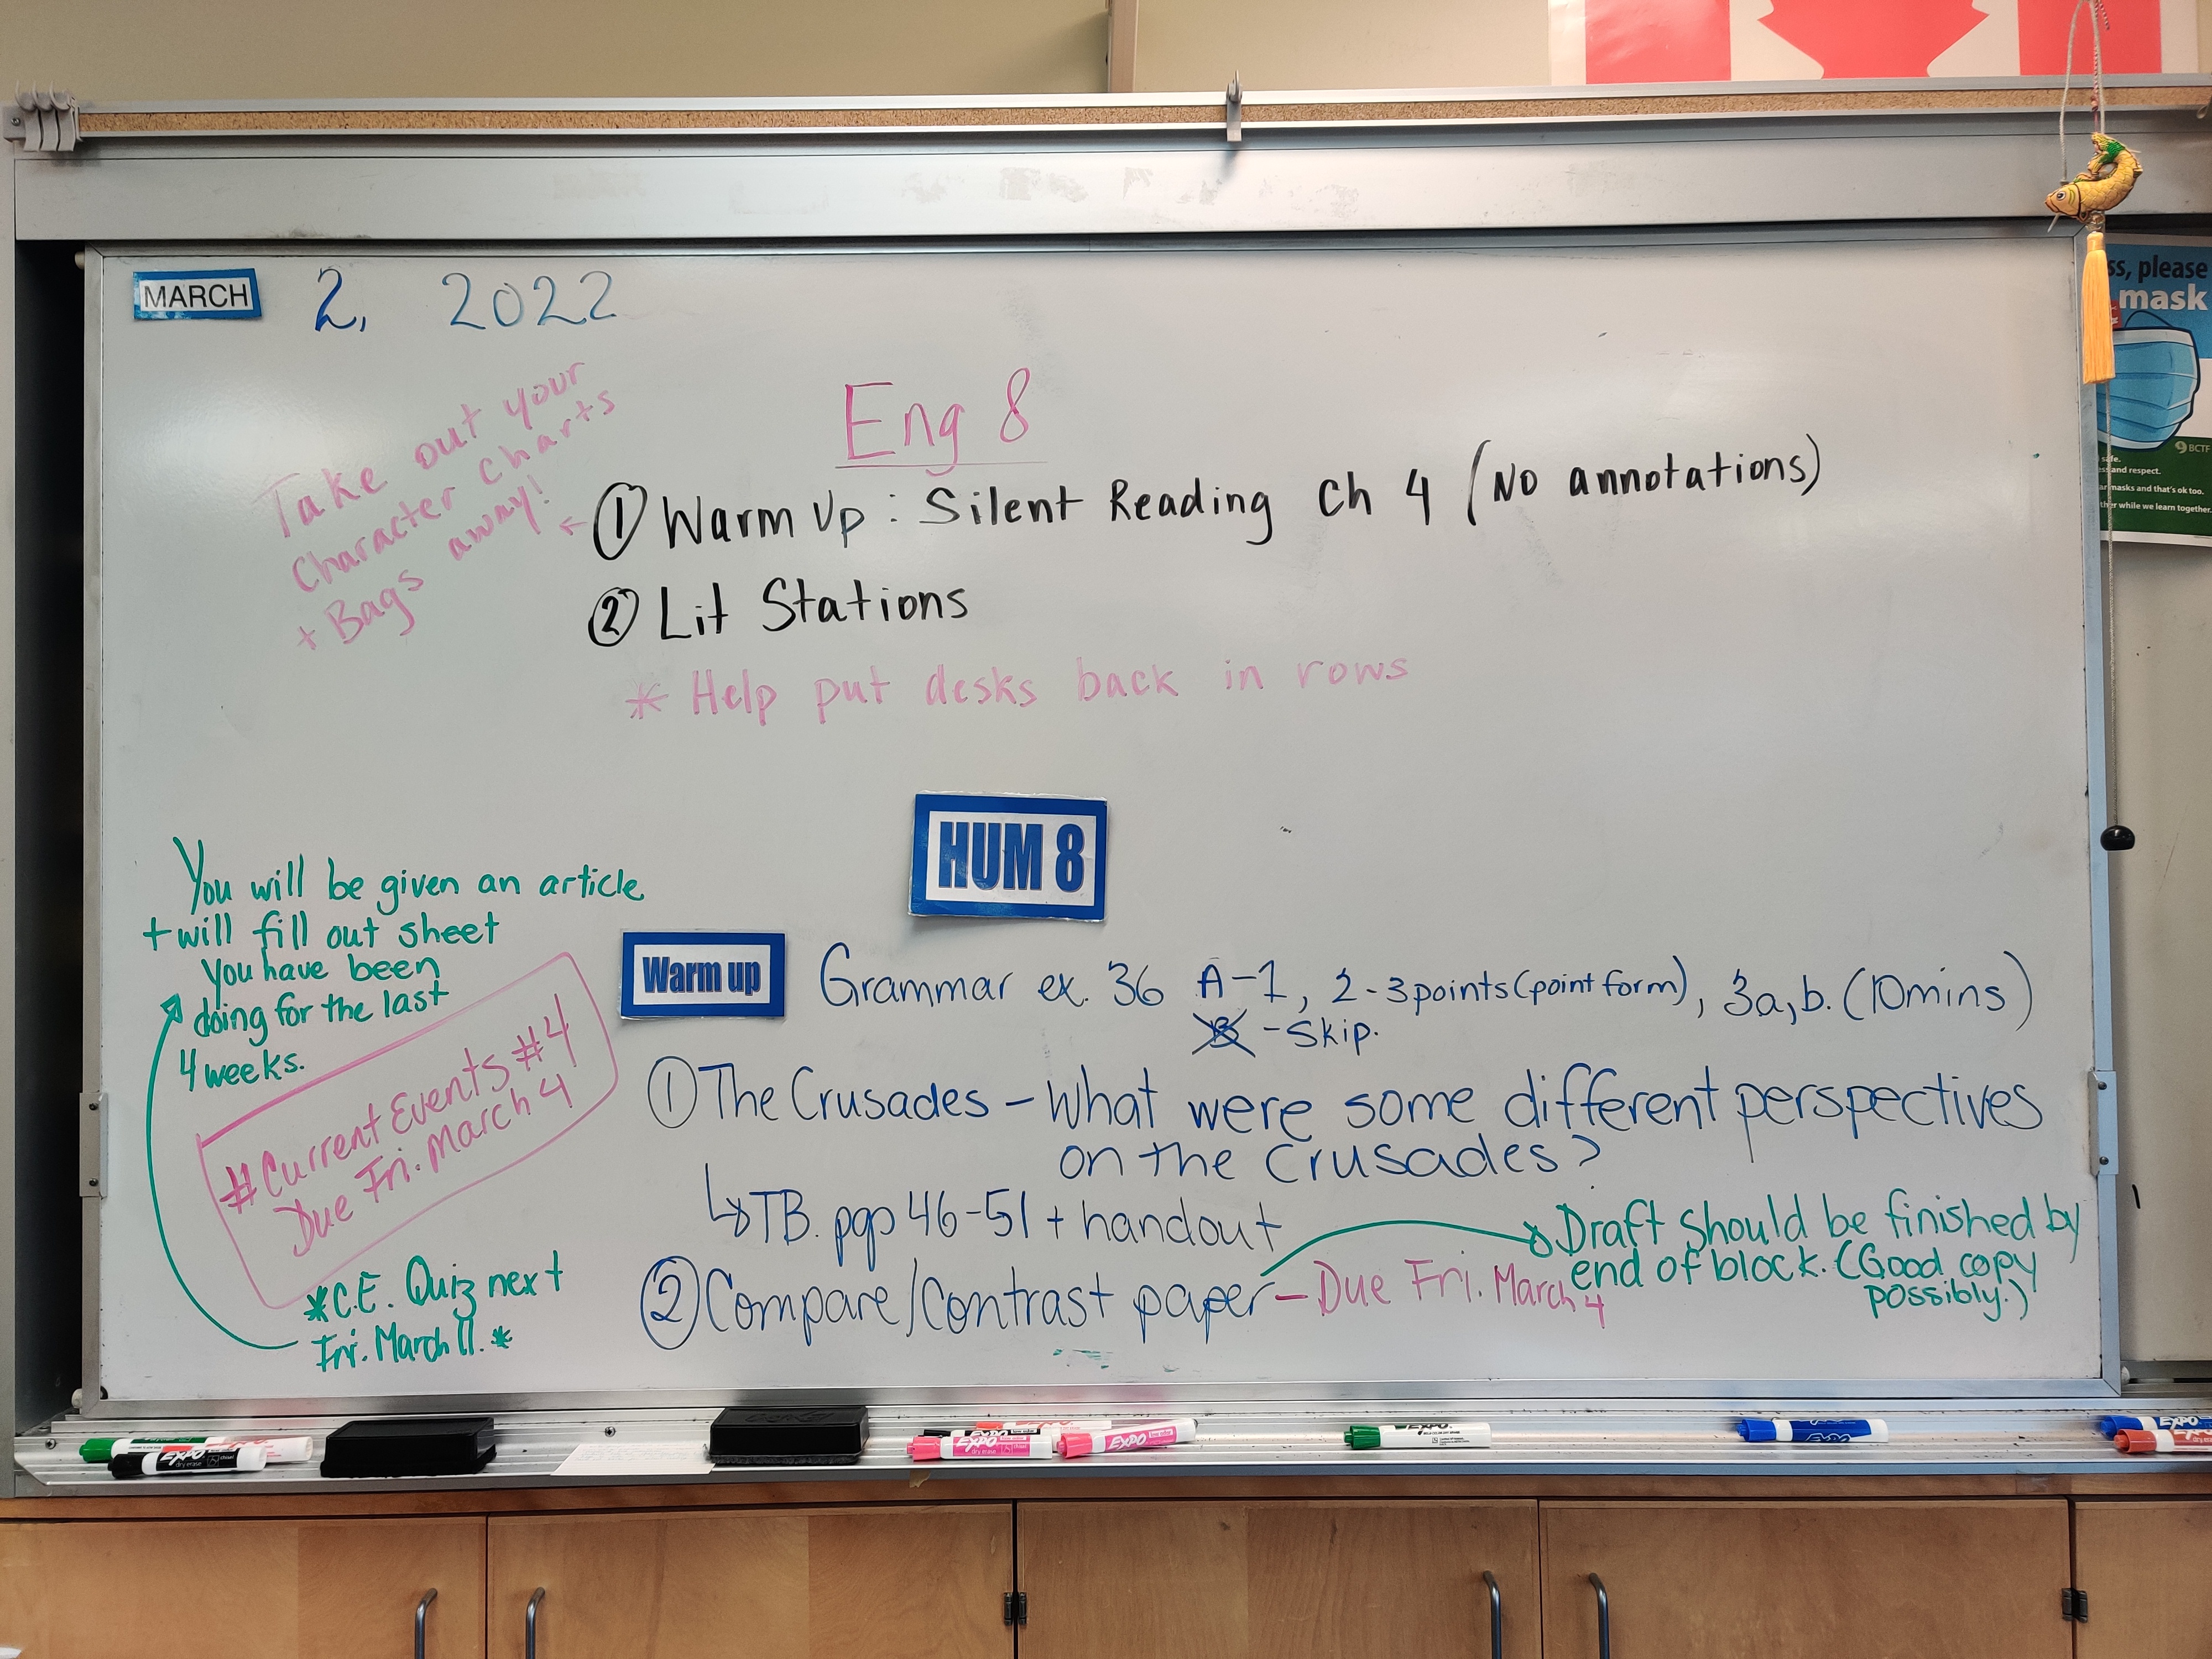 MARCH 2, 2022
Take out your
Character Charts
+ Bags away!
Eng 8
← ① Warm Up : Silent Reading Ch 4 (No annotations)
② Lit Stations
* Help put desks back in rows
HUM 8
You will be given an article
+ will fill out sheet
you have been
doing for the last
4 weeks.
# Current Events #4
Due Fri. March 4
*C.E. Quiz next
Fri. March 11. *
Warm up Grammar ex. 36 A-1, 2-3points (point form), 3a, b. (10mins)
B - Skip.
① The Crusades - What were some different perspectives
on the Crusades?
↳ TB. pgs 46-51 + handout
② Compare/Contrast paper - Due Fri. March 4
Draft should be finished by
end of block. (Good copy
possibly.)
ss, please
mask
BCTF
safe.
ss and respect.
masks and that's ok too.
ther while we learn together.
EXPO
EXPO
EXPO
EXPO
EXPO
EXPO